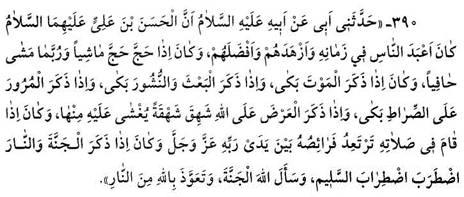 ۳۹۰ـ «حَدَّثَنِي أَبِي عَنْ أَبِيهِ عَلَيْهِ السَّلَامُ أَنَّ الْحَسَنَ بْنَ عَلِيٍّ عَلَيْهِمَا السَّلَامُ
كَانَ اَعْبَدَ النَّاسِ فِي زَمَانِهِ وَاَزْهَدَهُمْ وَاَفْضَلَهُمْ، وَكَانَ اِذَا حَجَّ حَجَّ مَاشِياً وَرُبَّمَا مَشَى
حَافِياً، وَكَانَ اِذَا ذَكَرَ الْمَوْتَ بَكَى، وَاِذَا ذَكَرَ الْبَعْثَ وَالنُّشُورَ بَكَى، وَاِذَا ذَكَرَ الْمُرُورَ
عَلَى الصِّرَاطِ بَكَى، وَاِذَا ذَكَرَ الْعَرْضَ عَلَى اللهِ شَهِقَ شَهْقَةً يُغْشَى عَلَيْهِ مِنْهَا، وَكَانَ اِذَا
قَامَ فِي صَلَاتِهِ تَرْتَعِدُ فَرَائِصُهُ بَيْنَ يَدَىْ رَبِّهِ عَزَّ وَجَلَّ وَكَانَ اِذَا ذَكَرَ الْجَنَّةَ وَالنَّـارَ
اضْطَرَبَ اضْطِرَابَ السَّلِيمِ، وَسَأَلَ اللهَ الْجَنَّةَ، وَتَعَوَّذَ بِاللهِ مِنَ النَّارِ».